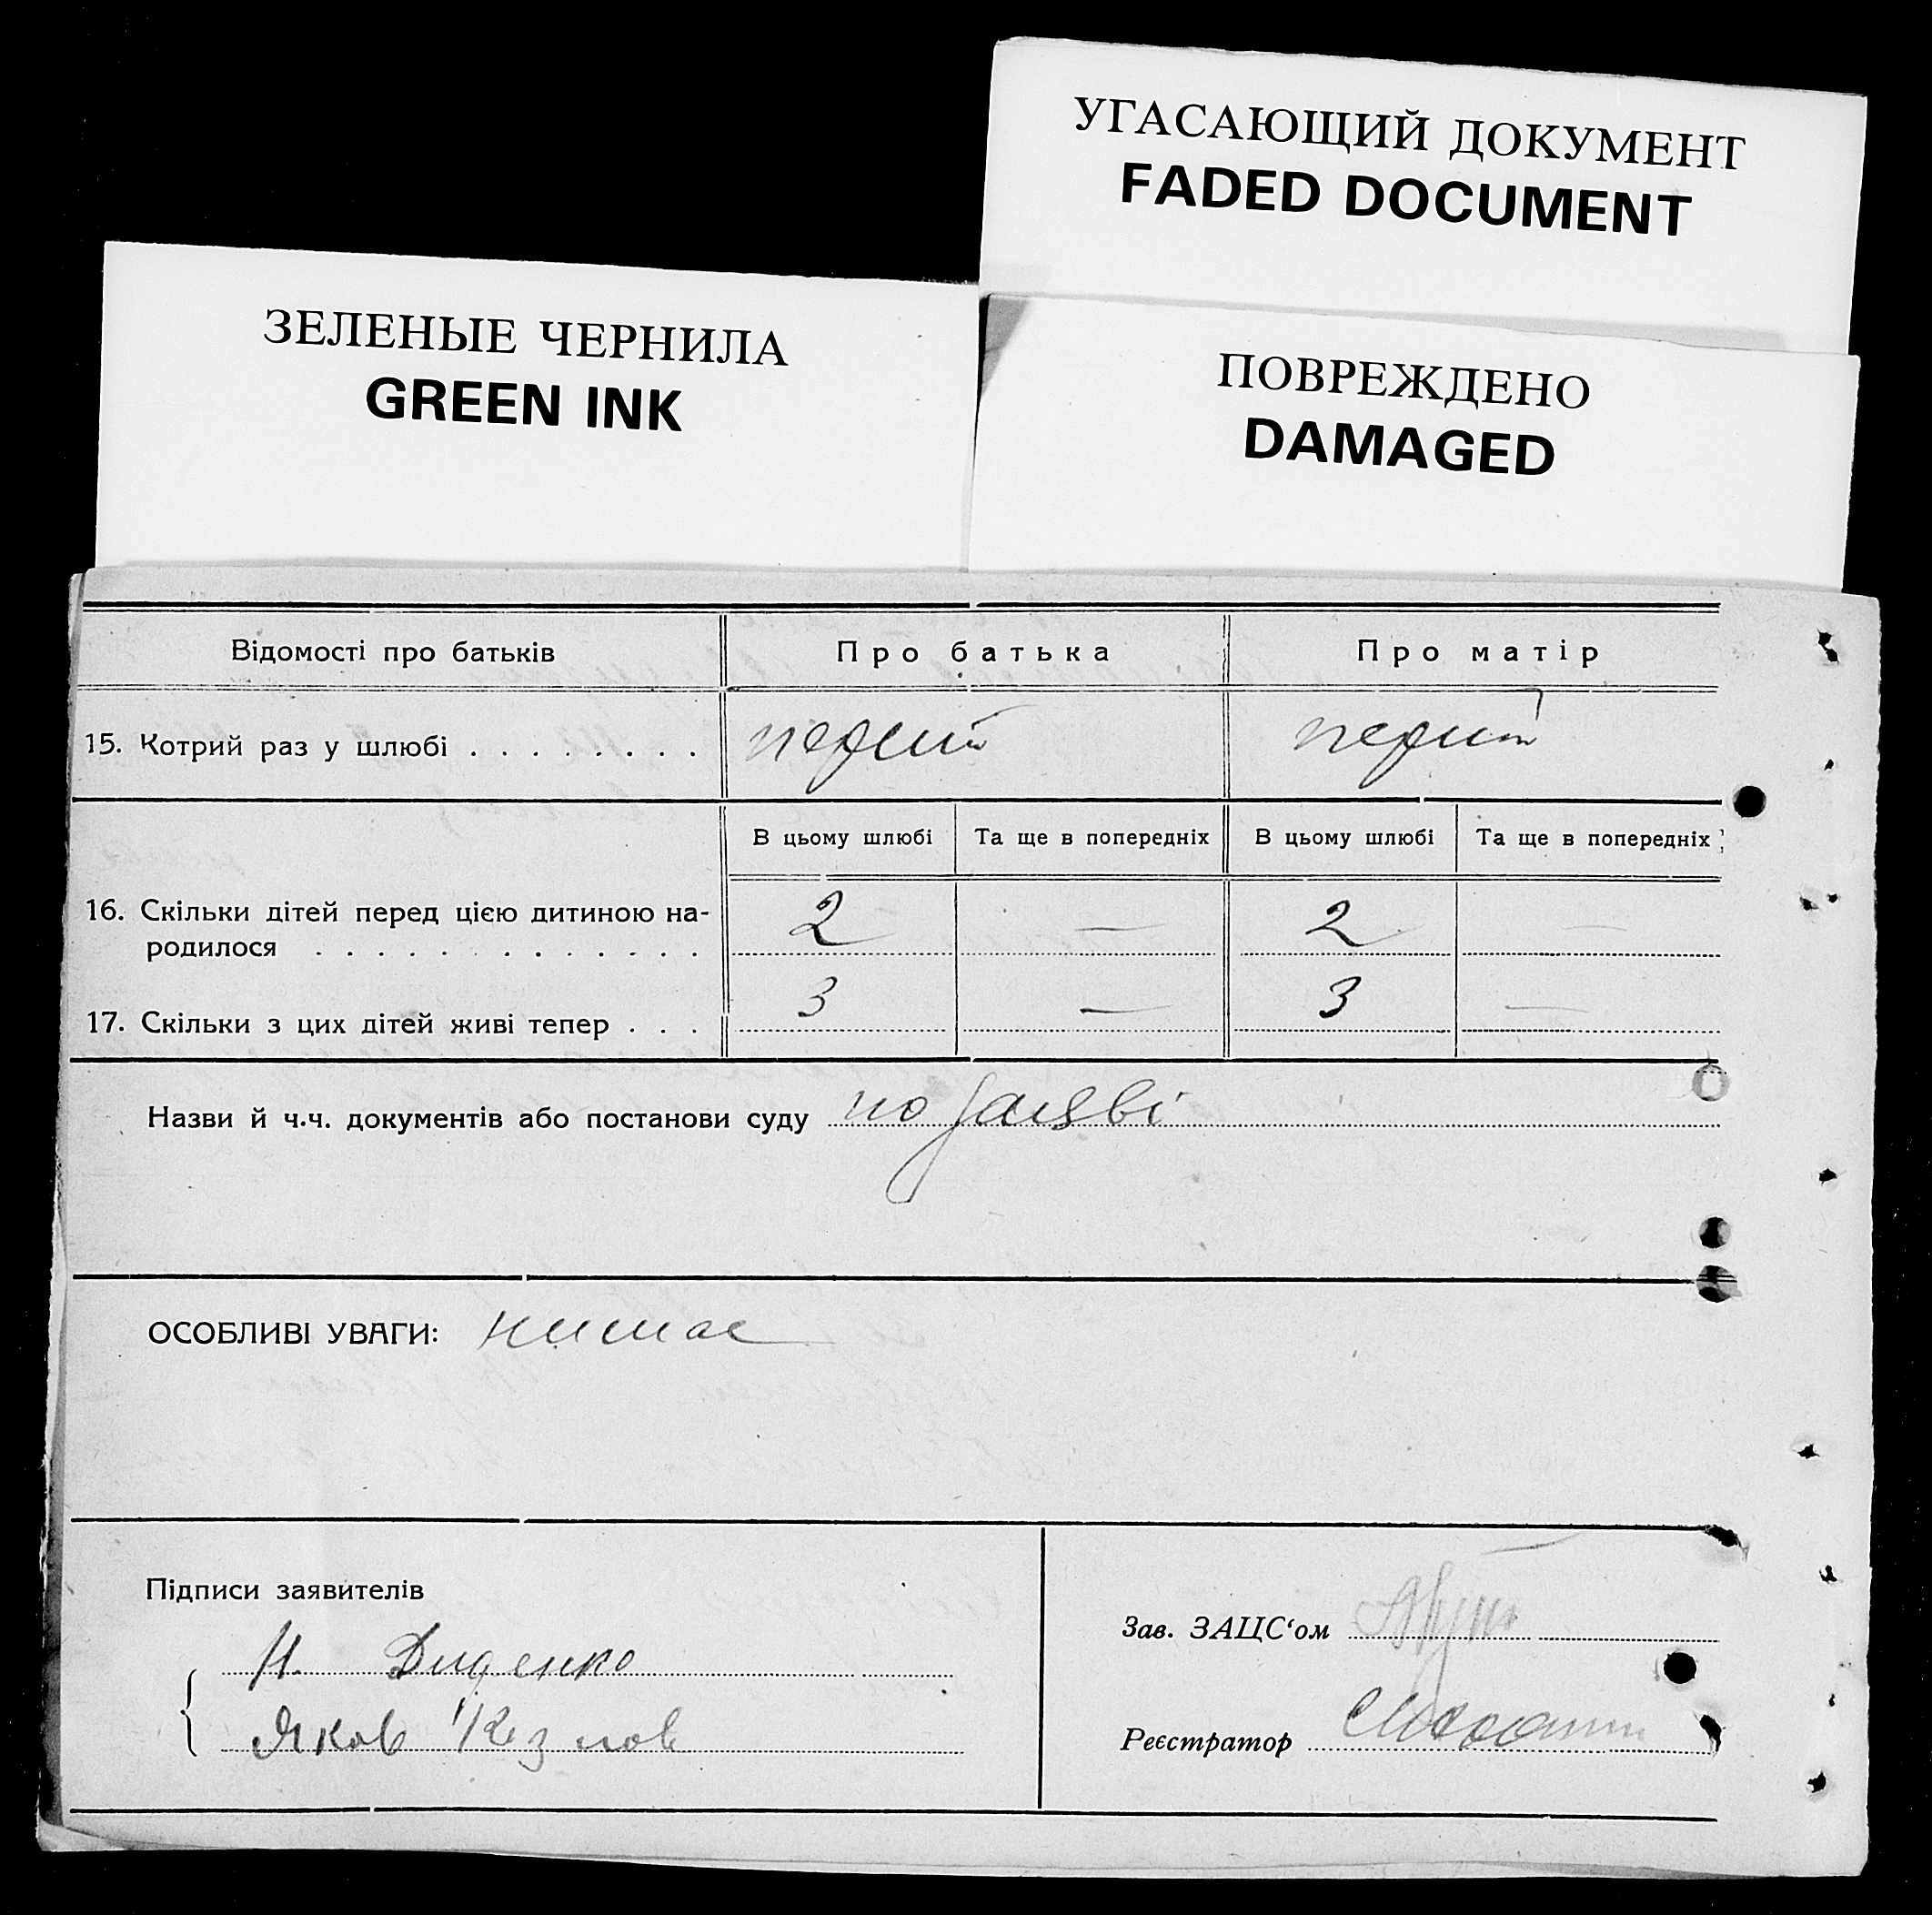 УГАСАЮЩИЙ ДОКУМЕНТ
FADED DOCUMENT
ЗЕЛЕНЫЕ ЧЕРНИЛА
GREEN INK
ПОВРЕЖДЕНО
DAMAGED
Відомості про батьків Про батька Про матір
15. Котрий раз у шлюбі . . . . . . . . перший перший
В цьому шлюбі Та ще в попередніх В цьому шлюбі Та ще в попередніх
16. Скільки дітей перед цією дитиною на- 2 — 2 —
родилося . . . . . . . . . . . . .
17. Скільки з цих дітей живі тепер . . . 3 — 3 —
Назви й ч.ч. документів або постанови суду по заяві
ОСОБЛИВІ УВАГИ: немає
Підписи заявителів
Зав. ЗАЦС‘ом
Н. Диденко
Яков Козлов
Реєстратор